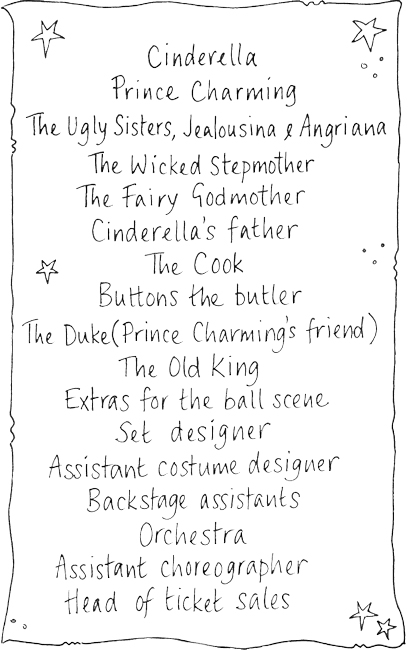 Cinderella
Prince Charming
The Ugly Sisters, Jealousina & Angriana
The Wicked Stepmother
The Fairy Godmother
Cinderella's father
The Cook
Buttons the butler
The Duke (Prince Charming's friend)
The Old King
Extras for the ball scene
Set designer
Assistant costume designer
Backstage assistants
Orchestra
Assistant choreographer
Head of ticket sales